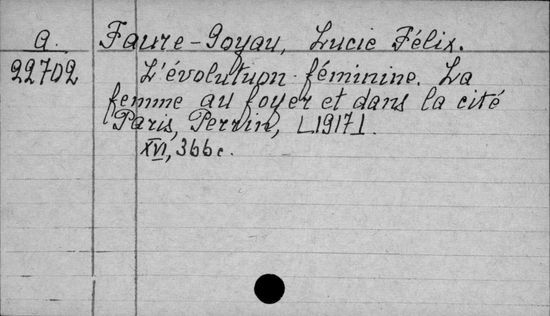 a. Faure-Goyau, Lucie Félix.
22702 L'évolution féminine. La
femme au foyer et dans la cité
Paris, Perrin, [1917].
XVI, 366 c.